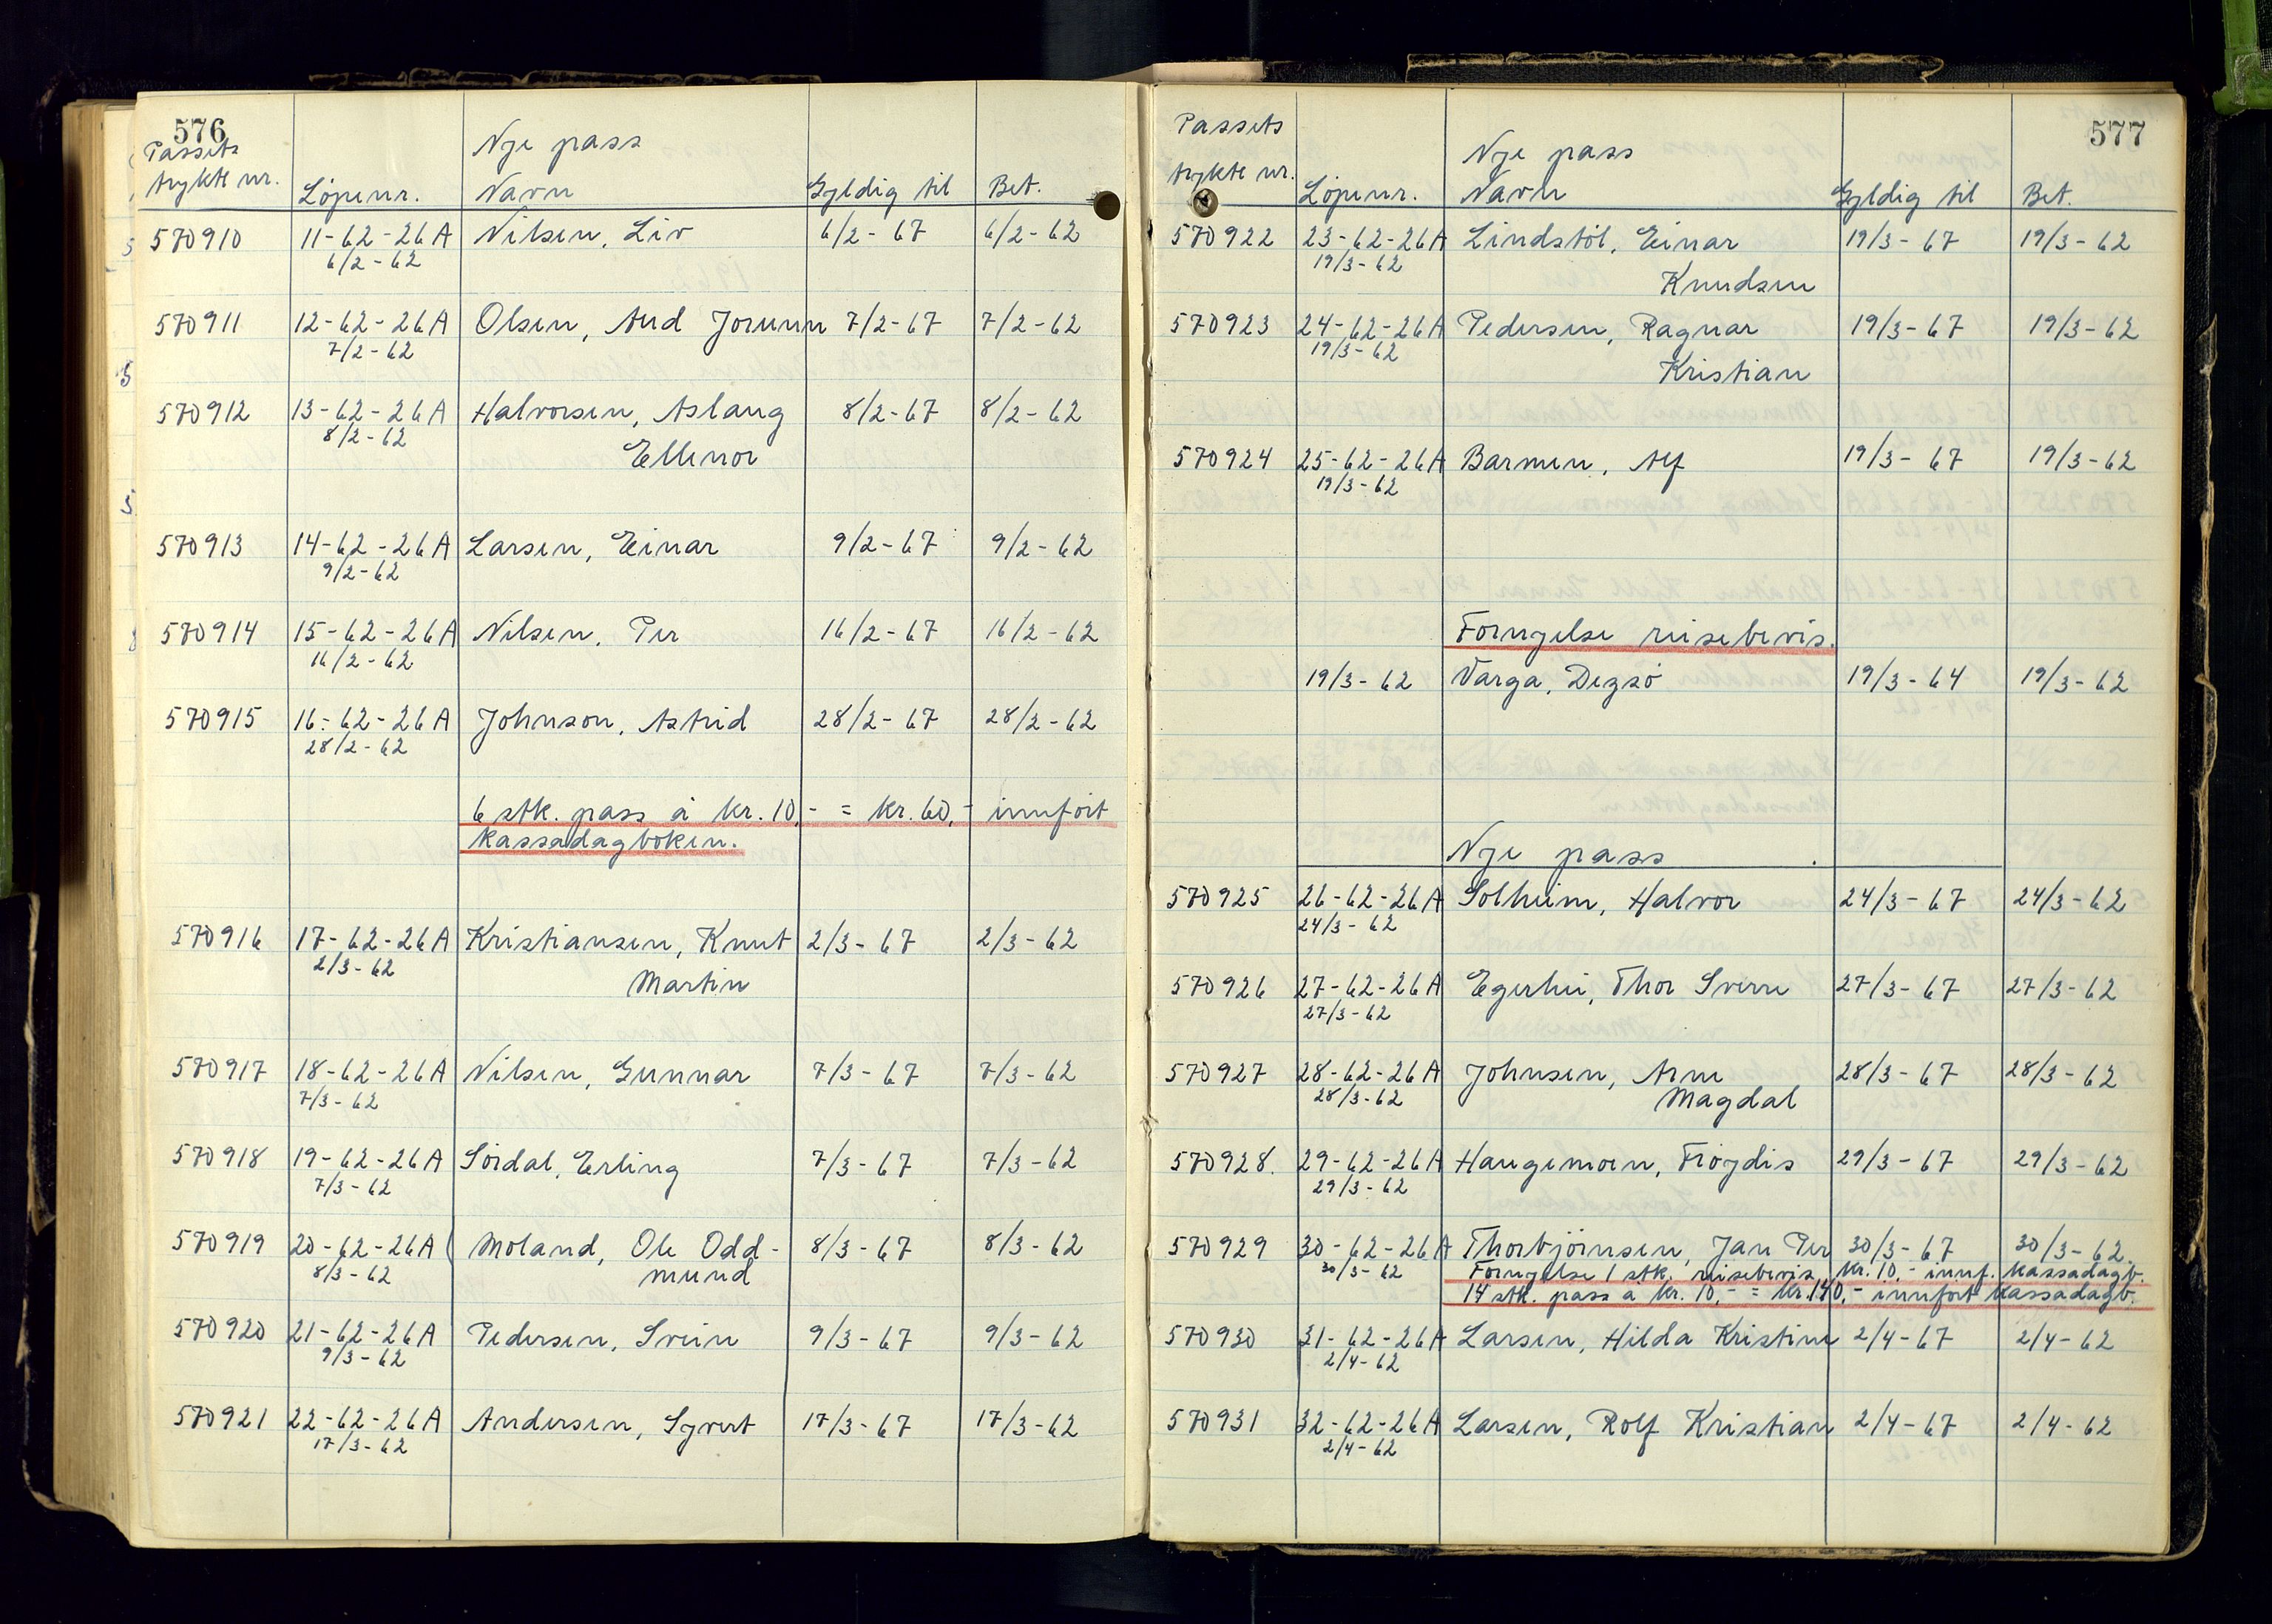 576
Passets
trykte nr.
Nye pass
Löpenr. Navn Gyldig til Bet.
570910 11-62-26A Nilsen, Liv 6/2-67 6/2-62
6/2-62
570911 12-62-26A Olsen, Aud Jorunn 7/2-67 7/2-62
7/2-62
570912 13-62-26A Halvorsen, Aslaug 8/2-67 8/2-62
8/2-62
Ellenor
570913 14-62-26A Larsen, Einar 9/2-67 9/2-62
9/2-62
570914 15-62-26A Nilsen, Per 16/2-67 16/2-62
16/2-62
570915 16-62-26A Johnson, Astrid 28/2-67 28/2-62
28/2-62
6 stk. pass à kr. 10,- = kr. 60,- innfört
kassadagboken.
570916 17-62-26A Kristiansen, Knut 2/3-67 2/3-62
2/3-62
Martin
570917 18-62-26A Nilsen, Gunnar 7/3-67 7/3-62
7/3-62
570918 19-62-26A Sördal, Erling 7/3-67 7/3-62
7/3-62
570919 20-62-26A Moland, Ole Odd- 8/3-67 8/3-62
8/3-62 mund
570920 21-62-26A Pedersen, Svein 9/3-67 9/3-62
9/3-62
570921 22-62-26A Andersen, Syvert 17/3-67 17/3-62
17/3-62
577
Passets
trykte nr.
Nye pass
Löpenr. Navn Gyldig til Bet.
570922 23-62-26A Lindstöl, Einar 19/3-67 19/3-62
19/3-62
Knudsen
570923 24-62-26A Pedersen, Ragnar 19/3-67 19/3-62
19/3-62
Kristian
570924 25-62-26A Barmen, Alf 19/3-67 19/3-62
19/3-62
Fornyelse reisebevis.
19/3-62 Varga, Dezsö 19/3-64 19/3-62
Nye pass
570925 26-62-26A Solheim, Halvor 24/3-67 24/3-62
24/3-62
570926 27-62-26A Egerhei, Thor Sverre 27/3-67 27/3-62
27/3-62
570927 28-62-26A Johnsen, Arne 28/3-67 28/3-62
28/3-62 Magdal
570928. 29-62-26A Haugemoen, Fröydis 29/3-67 29/3-62
29/3-62
570929 30-62-26A Thorbjörnsen, Jan Per 30/3-67 30/3-62.
30/3-62 Fornyelse 1 stk. reisebevis kr. 10,- innf. kassadagb.
14 stk. pass à kr. 10,- = kr. 140,- innfört kassadagb.
570930 31-62-26A Larsen, Hilda Kristine 2/4-67 2/4-62
2/4-62
570931 32-62-26A Larsen, Rolf Kristian 2/4-67 2/4-62
2/4-62